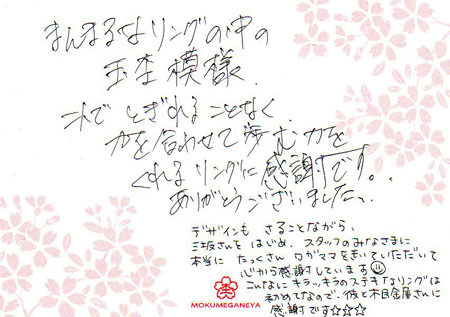 まんまるなリングの中の
玉杢模様.
これで とぎれることなく
力を合わせて歩む力を
くれるリングに感謝です。
ありがとうございました。
デザインも さることながら、
三坂さんを はじめ、スタッフのみなさまに
本当に たっくさん ワガママをきいていただいて
心から感謝しています
こんなに キラッキラのステキなリングは
初めてなので、彼と木目金屋さんに
感謝です☆☆☆
MOKUMEGANEYA